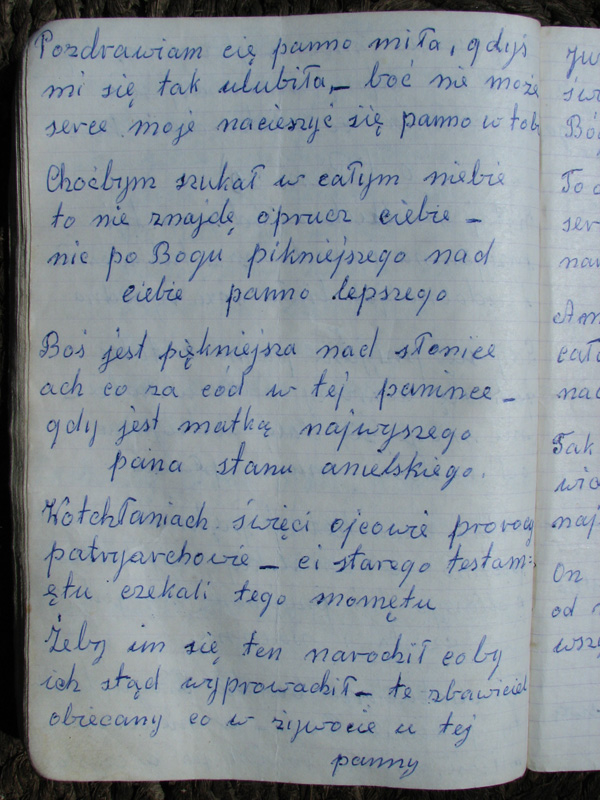 Pozdrawiam cię panno miła, gdyś
mi się tak ulubiła_ boć nie może
serce moje nacieszyć siię panno w tob
Choćbym szukał w całym niebie
to nie znajdę oprucz ciebie _
nic po Bogu pikniejszego nad
ciebie panno lepszego
Boś jest piękniejsza nad słonice
ach co za cód w tej panince_
gdy jest matką najwyszego
pana stanu anielskiego.
Wotchłaniach święci ojcowie prorocy
patryarchowie_ ci starego testam=
ętu czekali tego momętu
Żeby im się ten narodził coby
ich stąd wyprowadził_ te zbawiciel
obiecany co w żywocie u tej
panny
św
Bó
To
ser
nar
Am
cał
nad
Tak
wio
naj
On
od
wszę